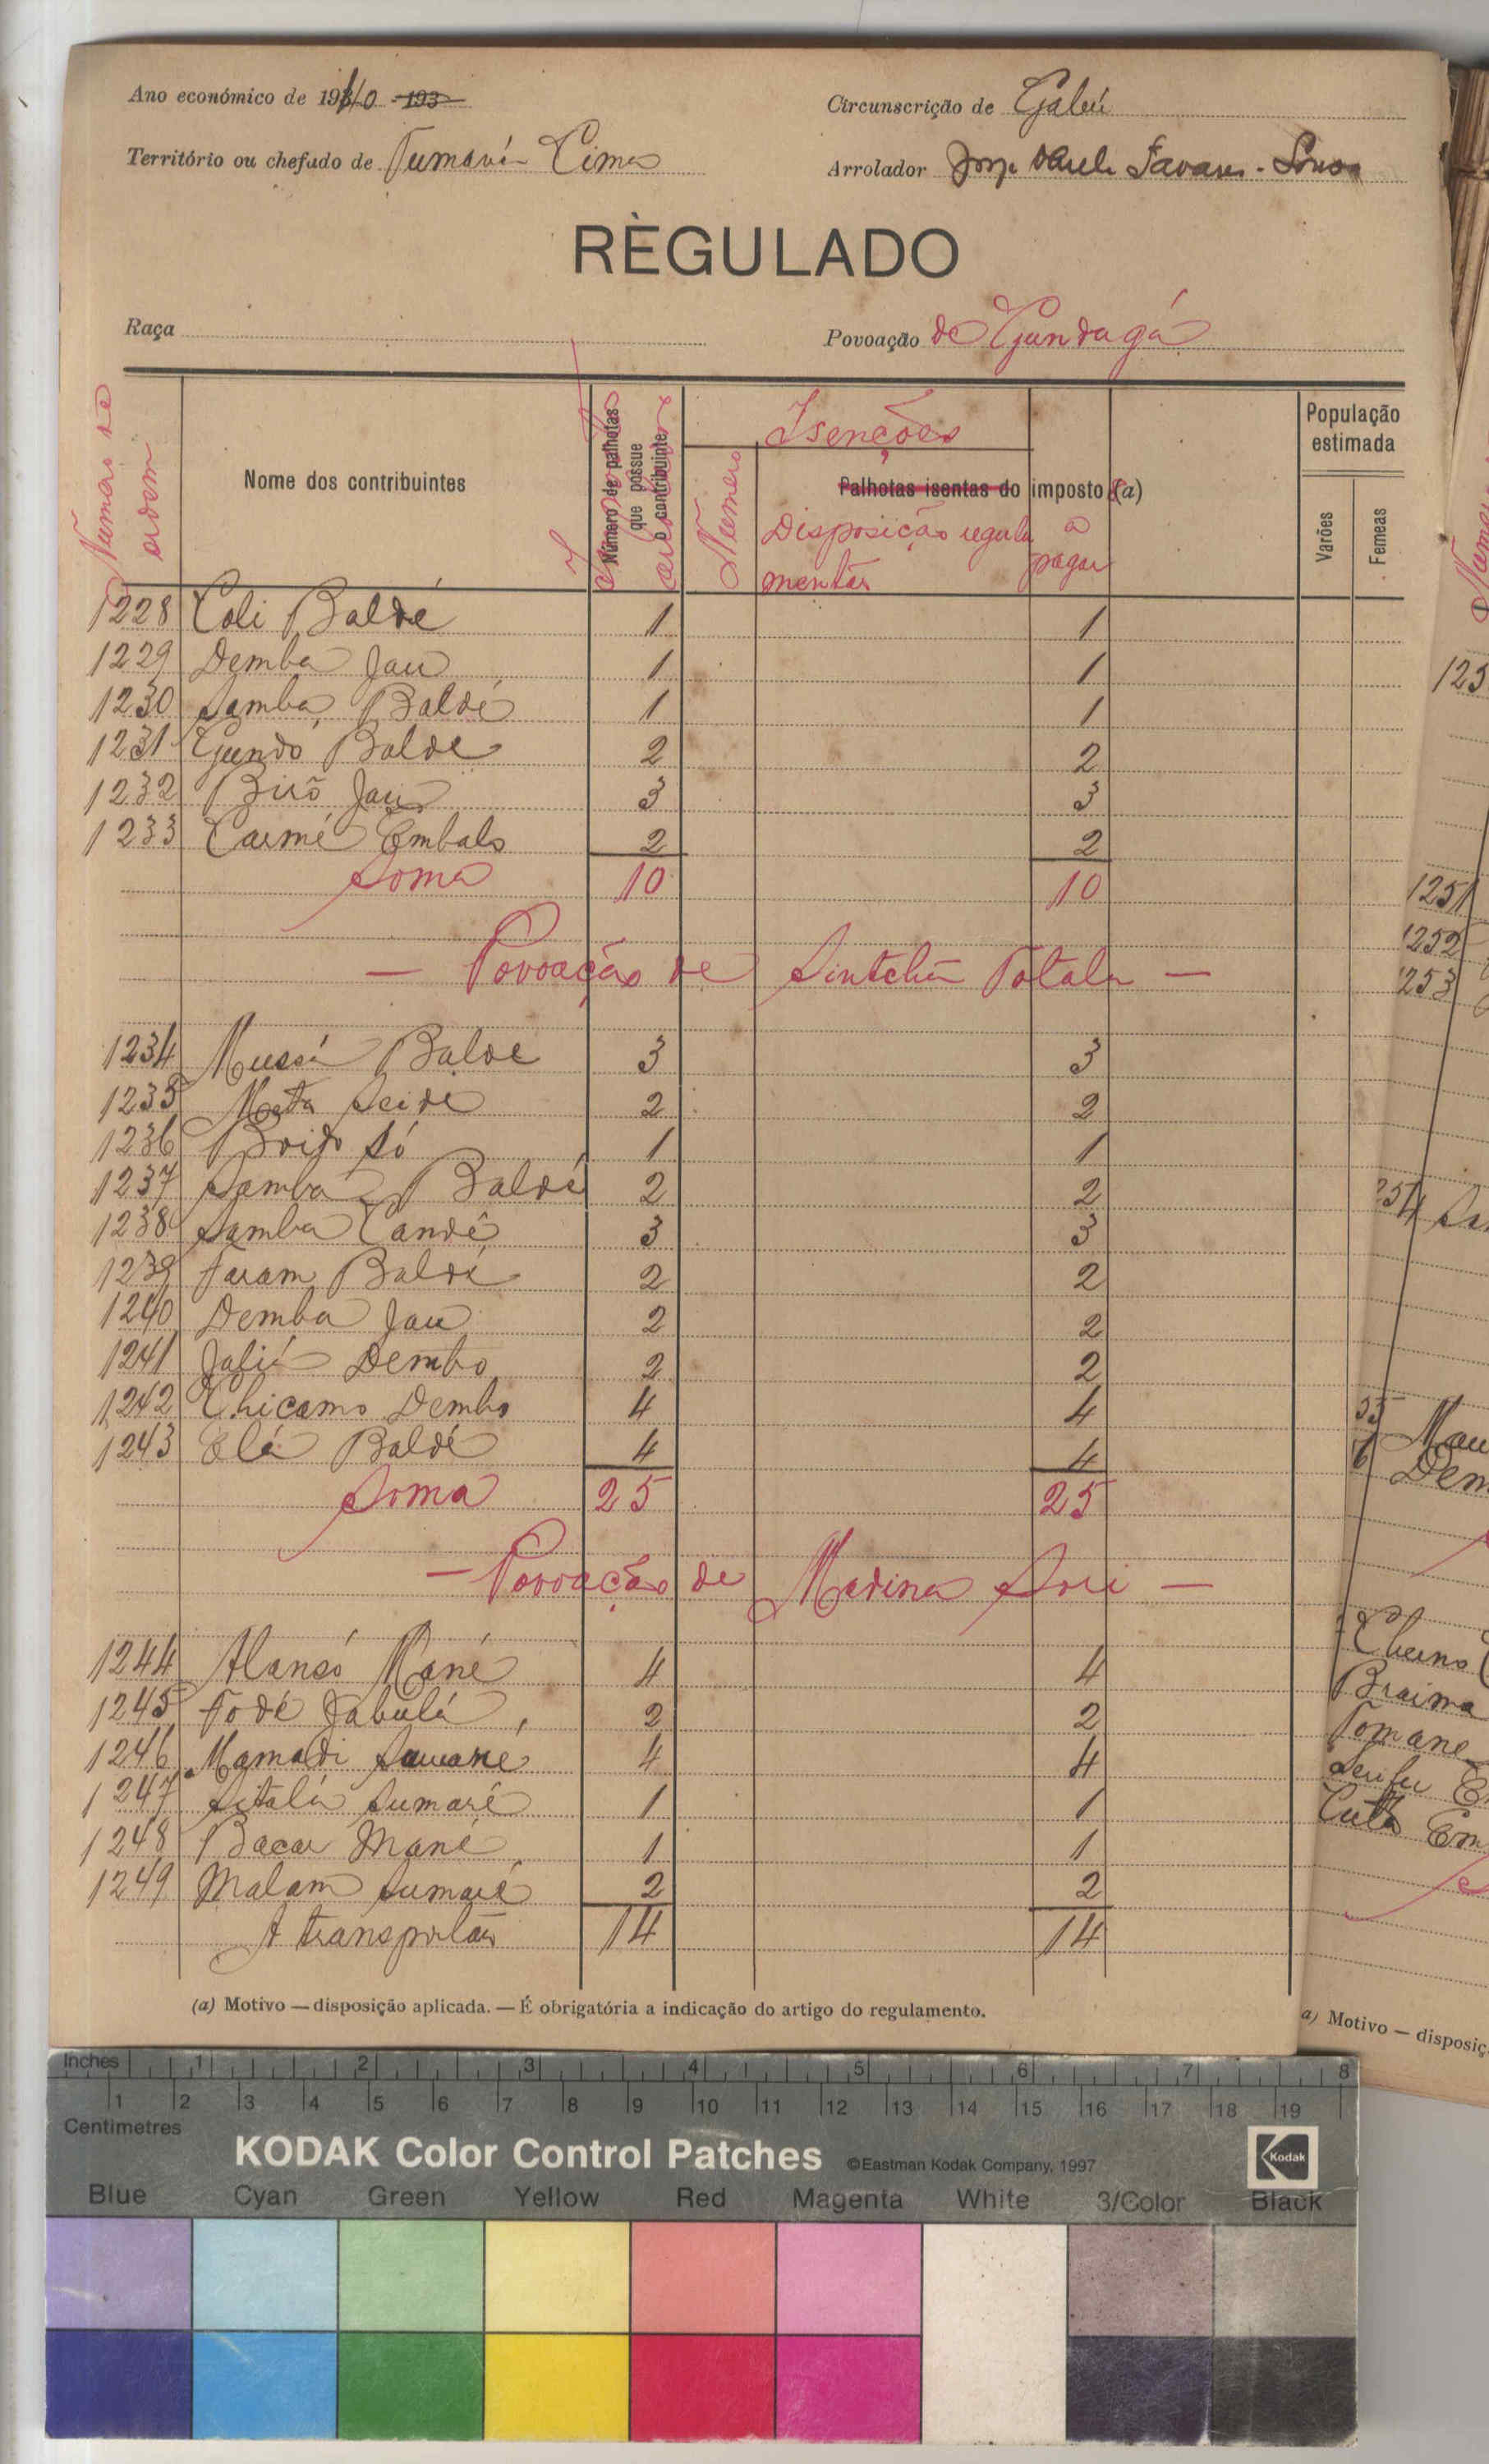 Ano económico de 1940 -193
Circunscrição de Gabú
Território ou chefado de Tumaná Cima
Arrolador Jorge Tavares - Sousa
RÈGULADO
Raça
Povoação de Gundagá
Numero de ordem
Nome dos contribuintes
Número de palhotas que possue o contribuinte
Isenções
Numero
Palhotas isentas do imposto (a)
Disposição regulamentar
a pagar
População estimada
Varões
Femeas
1228 Coli Baldé 1 1
1229 Demba Jau 1 1
1230 Samba Baldé 1 1
1231 Gundó Balde 2 2
1232 Birõ Jau 3 3
1233 Carmé Embalo 2 2
Soma 10 10
— Povoação de Sintchã Totala —
1234 Mussá Balde 3 3
1235 Meta Seide 2 2
1236 Boido Só 1 1
1237 Samba Baldé 2 2
1238 Samba Candê 3 3
1239 Faram Baldé 2 2
1240 Demba Jau 2 2
1241 Jaliú Dembo 2 2
1242 Chicamo Dembo 4 4
1243 Elá Baldé 4 4
Soma 25 25
— Povoação de Madina Sori —
1244 Alansó Mané 4 4
1245 Fodé Jabulá 2 2
1246 Mamadi Sumaré 4 4
1247 Sitafá Sumaré 1 1
1248 Bacar Mané 1 1
1249 Malam Sumaré 2 2
A transportar 14 14
(a) Motivo — disposição aplicada. — É obrigatória a indicação do artigo do regulamento.
125
1251
1252
253
Braima
Tomane
a) Motivo — disposiç
Inches 1 2 3 4 5 6 7 8
1 2 3 4 5 6 7 8 9 10 11 12 13 14 15 16 17 18 19
Centimetres
KODAK Color Control Patches ©Eastman Kodak Company, 1997 Kodak
Blue Cyan Green Yellow Red Magenta White 3/Color Black